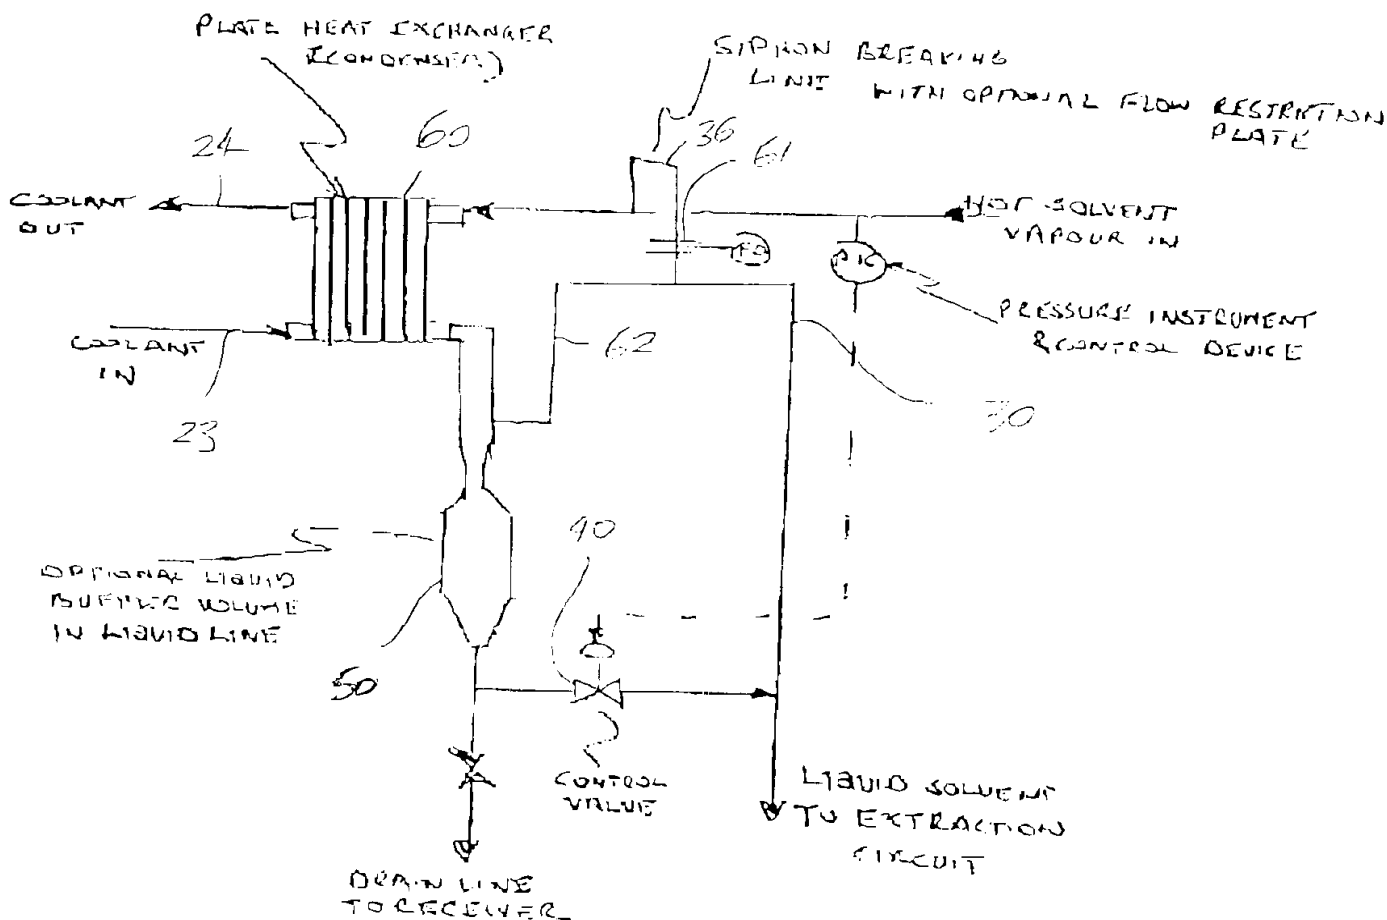 PLATE HEAT EXCHANGER
(CONDENSER)
SIPHON BREAKING
LINE WITH OPTIONAL FLOW RESTRICTION
PLATE
24
60
36
61
COOLANT
OUT
HOT SOLVENT
VAPOUR IN
COOLANT
IN
23
62
PRESSURE INSTRUMENT
& CONTROL DEVICE
30
OPTIONAL LIQUID
BUFFER VOLUME
IN LIQUID LINE
50
40
CONTROL
VALVE
LIQUID SOLVENT
TO EXTRACTION
CIRCUIT
DRAIN LINE
TO RECEIVER